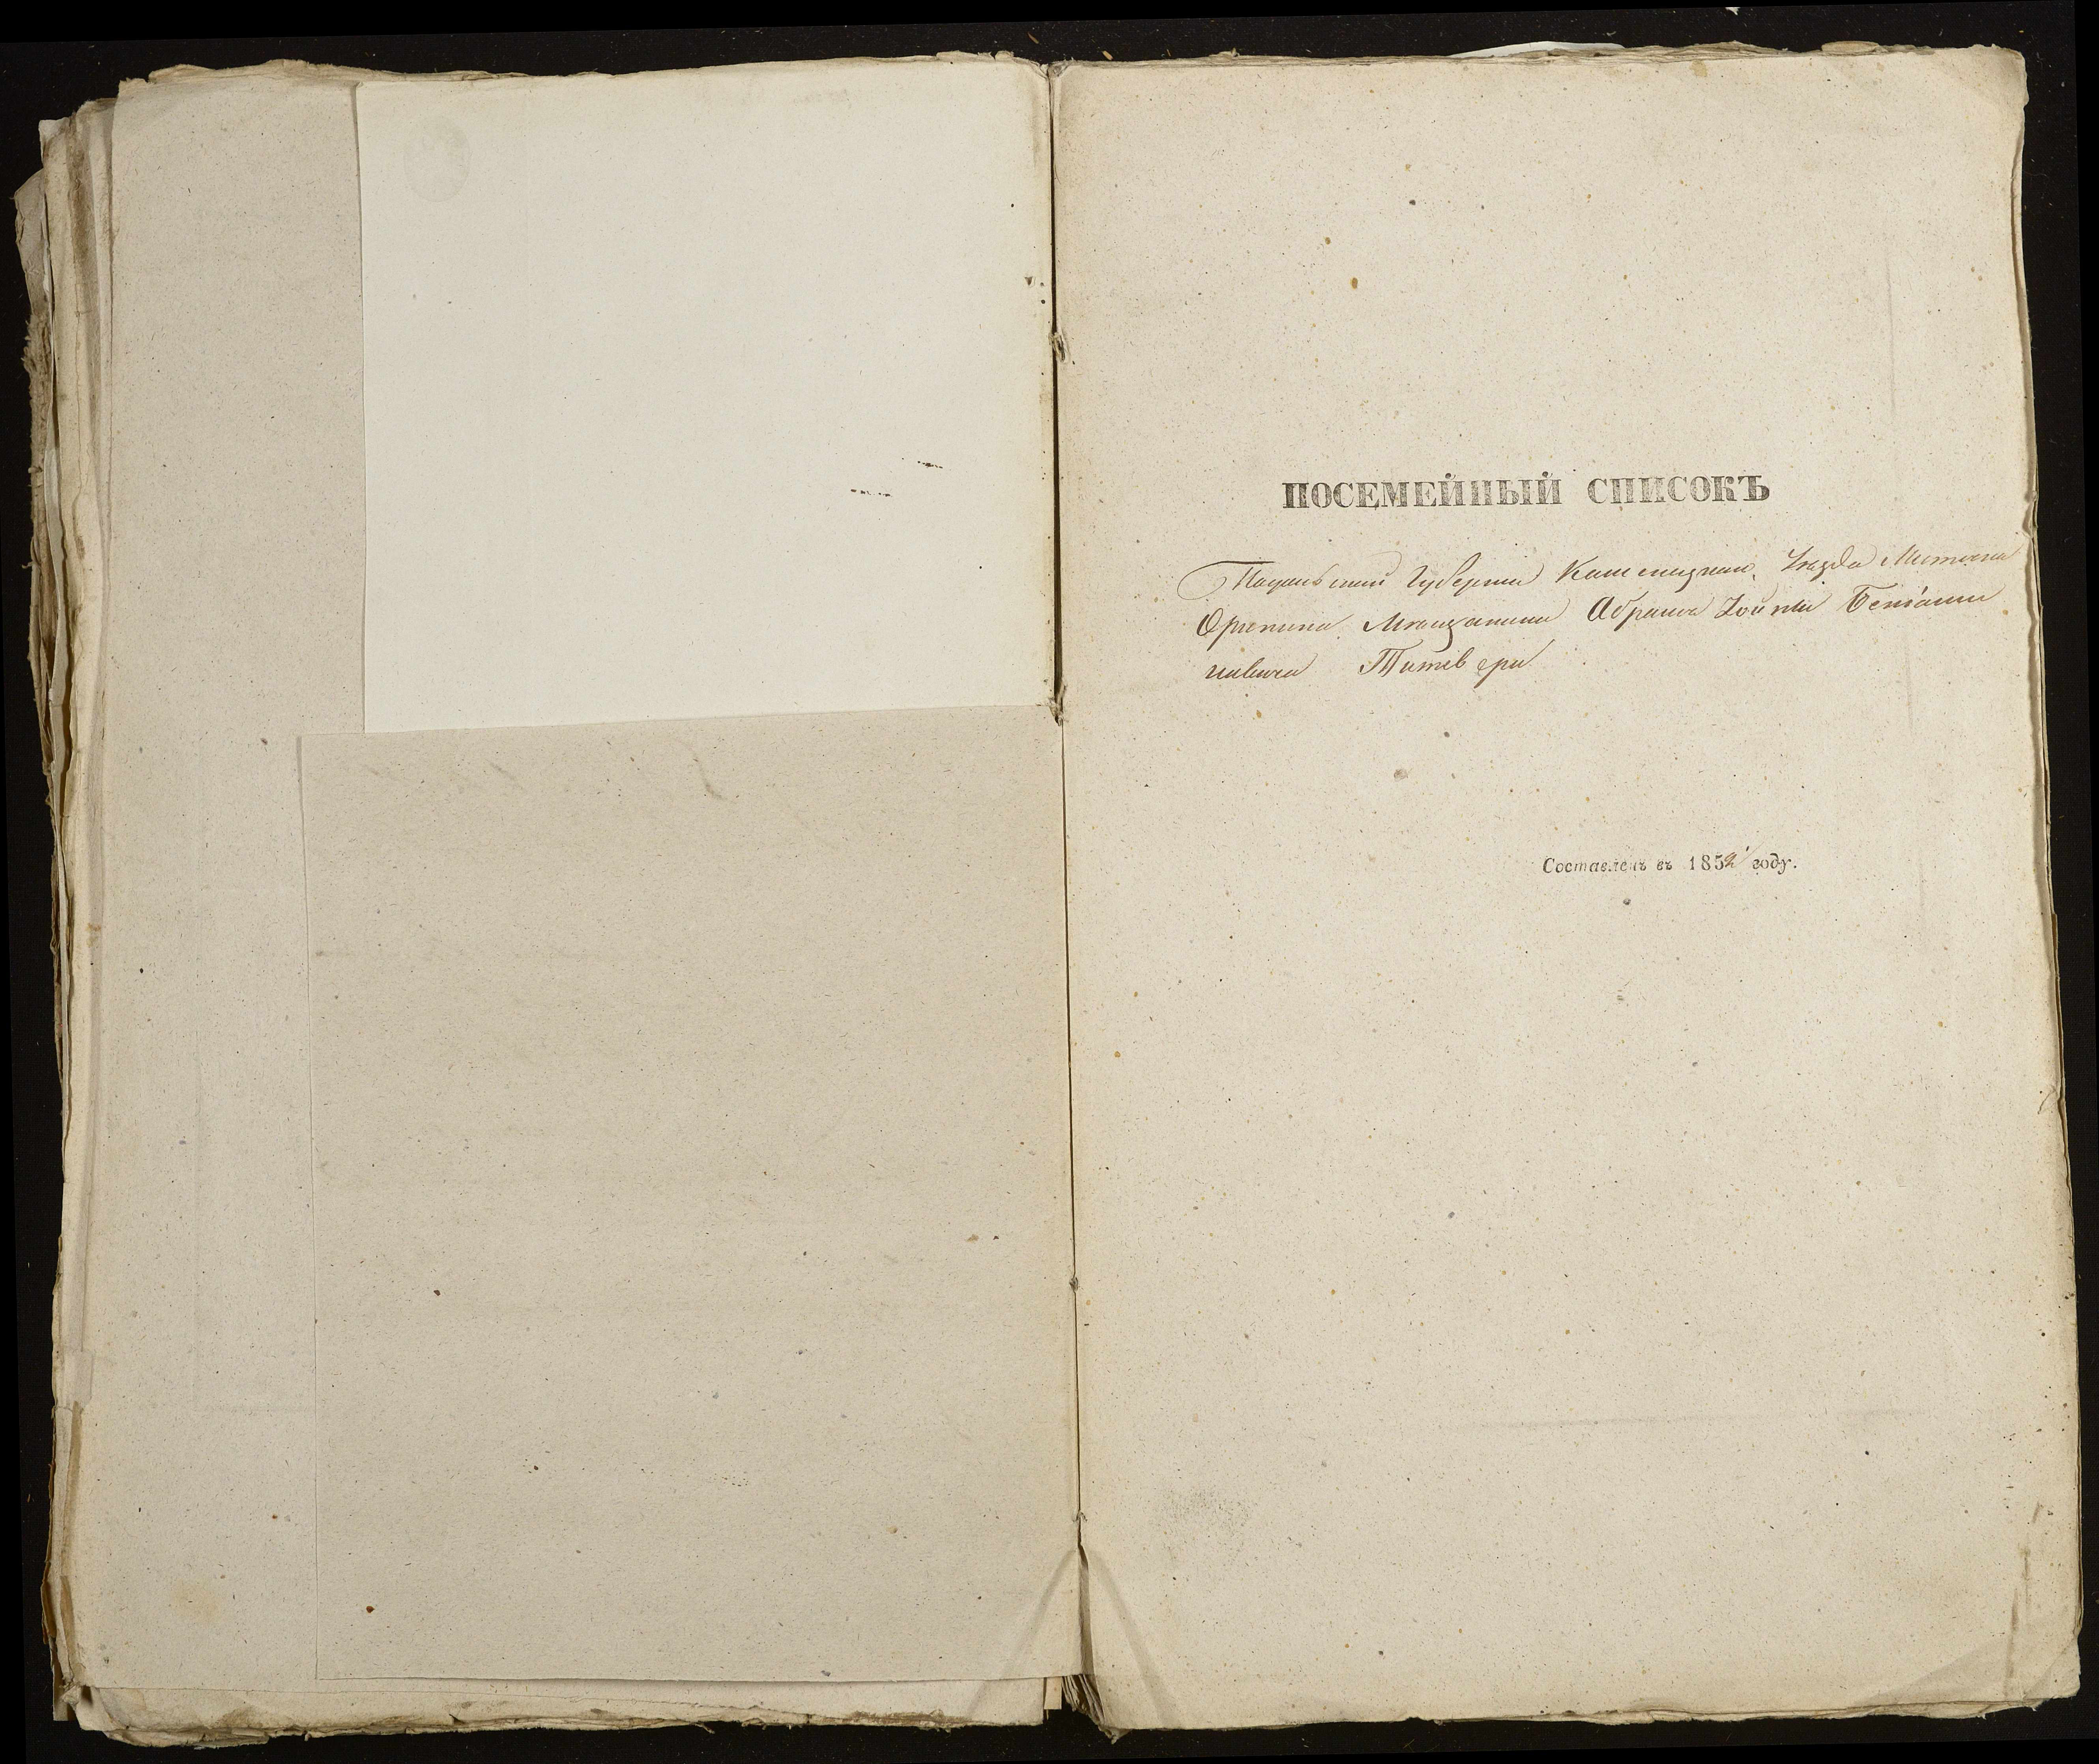 ПОСЕМЕЙНЫЙ СПИСОКЪ
Подольской Губерніи Каменецкаго Уѣзда Мѣстечка
Оринина Мѣщанина Абрама Зойнла Беніами
новича
Составленъ въ 1852 году.